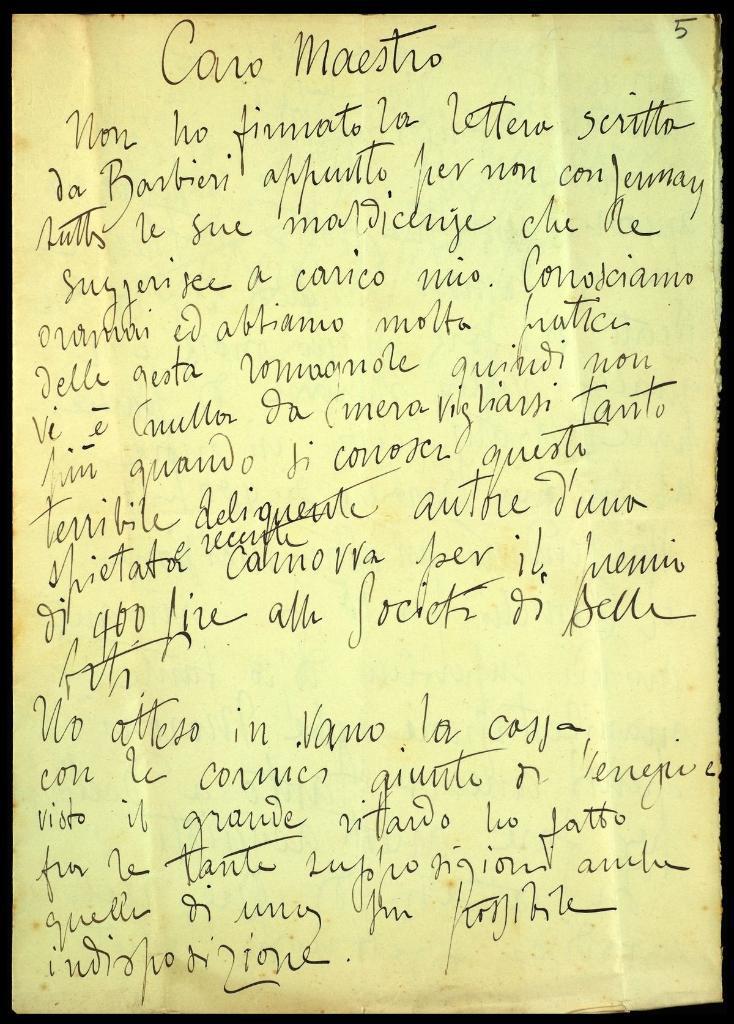 5
Caro Maestro
Non ho firmato la lettera scritta
da Barbieri appunto per non confermar
tutte le sue maldicenze che le
suggerisce a carico mio. Conosciamo
oramai ed abbiamo molta pratica
delle gesta romagnole quindi non
vi è nulla da meravigliarsi tanto
più quando si conosce questo
terribile deliquente autore d'una
spietata e recente camorra per il premio
di 400 lire alla Società di Belle
Arti.
Ho atteso in vano la cassa
con le cornici giunte di Venezia e
visto il grande ritardo ho fatto
fra le tante supposizioni anche
quella di una possibile
indisposizione.